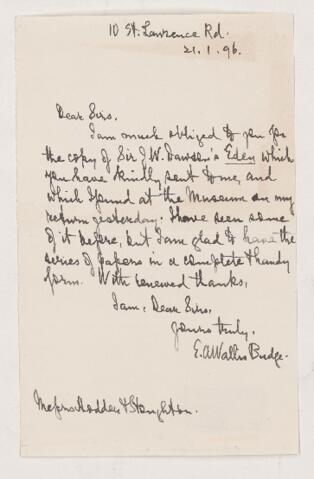 10 St. Lawrence Rd.
21.1.96.
Dear Sirs.
I am much obliged to you for
the copy of Sir J. W. Dawson's Eden which
you have kindly sent to me, and
which I found at the Museum on my
return yesterday. I have seen some
of it before, but I am glad to have the
series of papers in a complete & handy
form. With renewed thanks,
I am, Dear Sirs,
Yours truly,
E. A Wallis Budge.
Messrs Hodder & Stoughton.